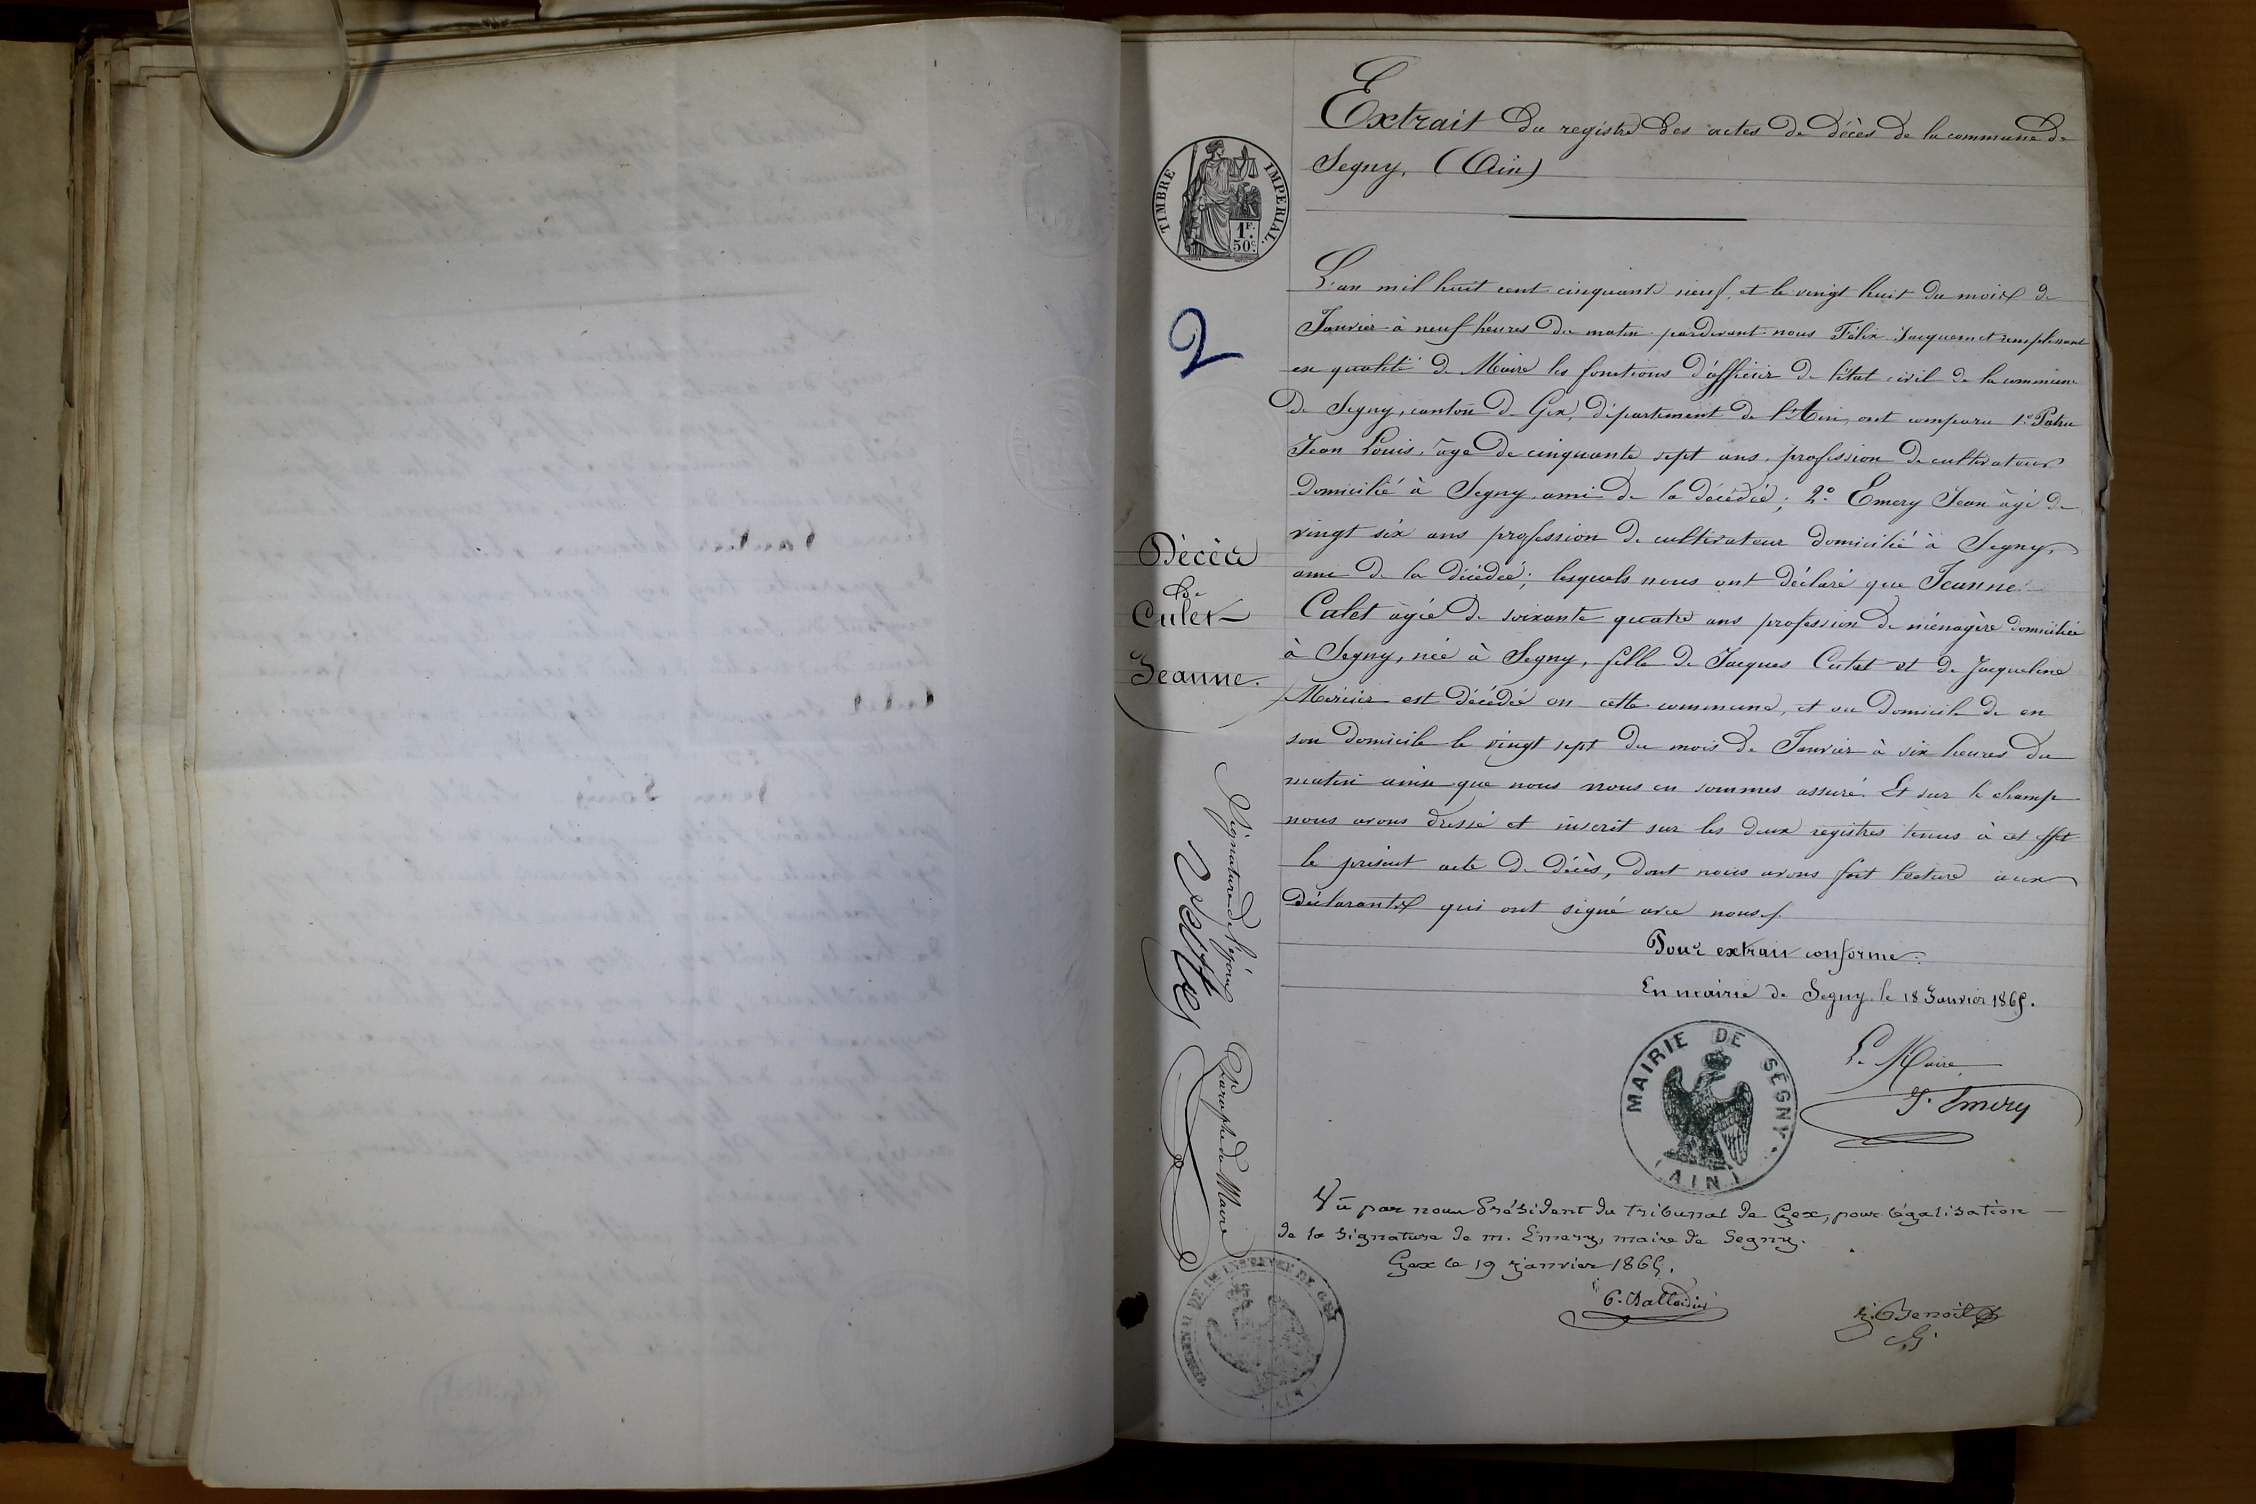 Extrait du registre des actes de décès de la commune de
Segny, (Ain)
TIMBRE IMPERIAL.
1F.
50c
2
L'an mil huit cent cinquante neuf, et le vingt huit du mois de
Janvier à neuf heures du matin pardevant nous Félix Jacquemet remplissant
en qualité de Maire les fonctions d'officier de l'état civil de la commune
de Segny, canton de Gex, département de l'Ain, ont comparu 1.° Patru
Jean Louis, âgé de cinquante sept ans, profession de cultivateur
domicilié à Segny ami de la décédée; 2.° Emery Jean âgé de
vingt six ans profession de cultivateur domicilié à Segny,
ami de la décédée; lesquels nous ont déclaré que Jeanne
Culet âgée de soixante quatre ans profession de ménagère domiciliée
à Segny, née à Segny, fille de Jacques Culet et de Jacqueline
Mercier est décédée en cette commune, et au domicile de en
son domicile le vingt sept du mois de Janvier à six heures du
matin ainsi que nous nous en sommes assuré. Et sur le champ
nous avons dressé et inscrit sur les deux registres tenus à cet effet
le présent acte de décès, dont nous avons fait lecture aux
déclarants qui ont signé avec nous.
Décès
de
Culet
Jeanne.
Pour extrait conforme.
En mairie de Segny le 18 Janvier 1865.
Le Maire,
J. Emery
MAIRIE DE SÉGNY
(AIN)
Signature de l'époux
Paraphe du Maire
Vu par nous Président du tribunal de Gex, pour légalisation
de la signature de m. Emery, maire de Segny.
Gex le 19 janvier 1865.
Benoit
TRIBUNAL DE 1RE INSTANCE DE GEX
(AIN)